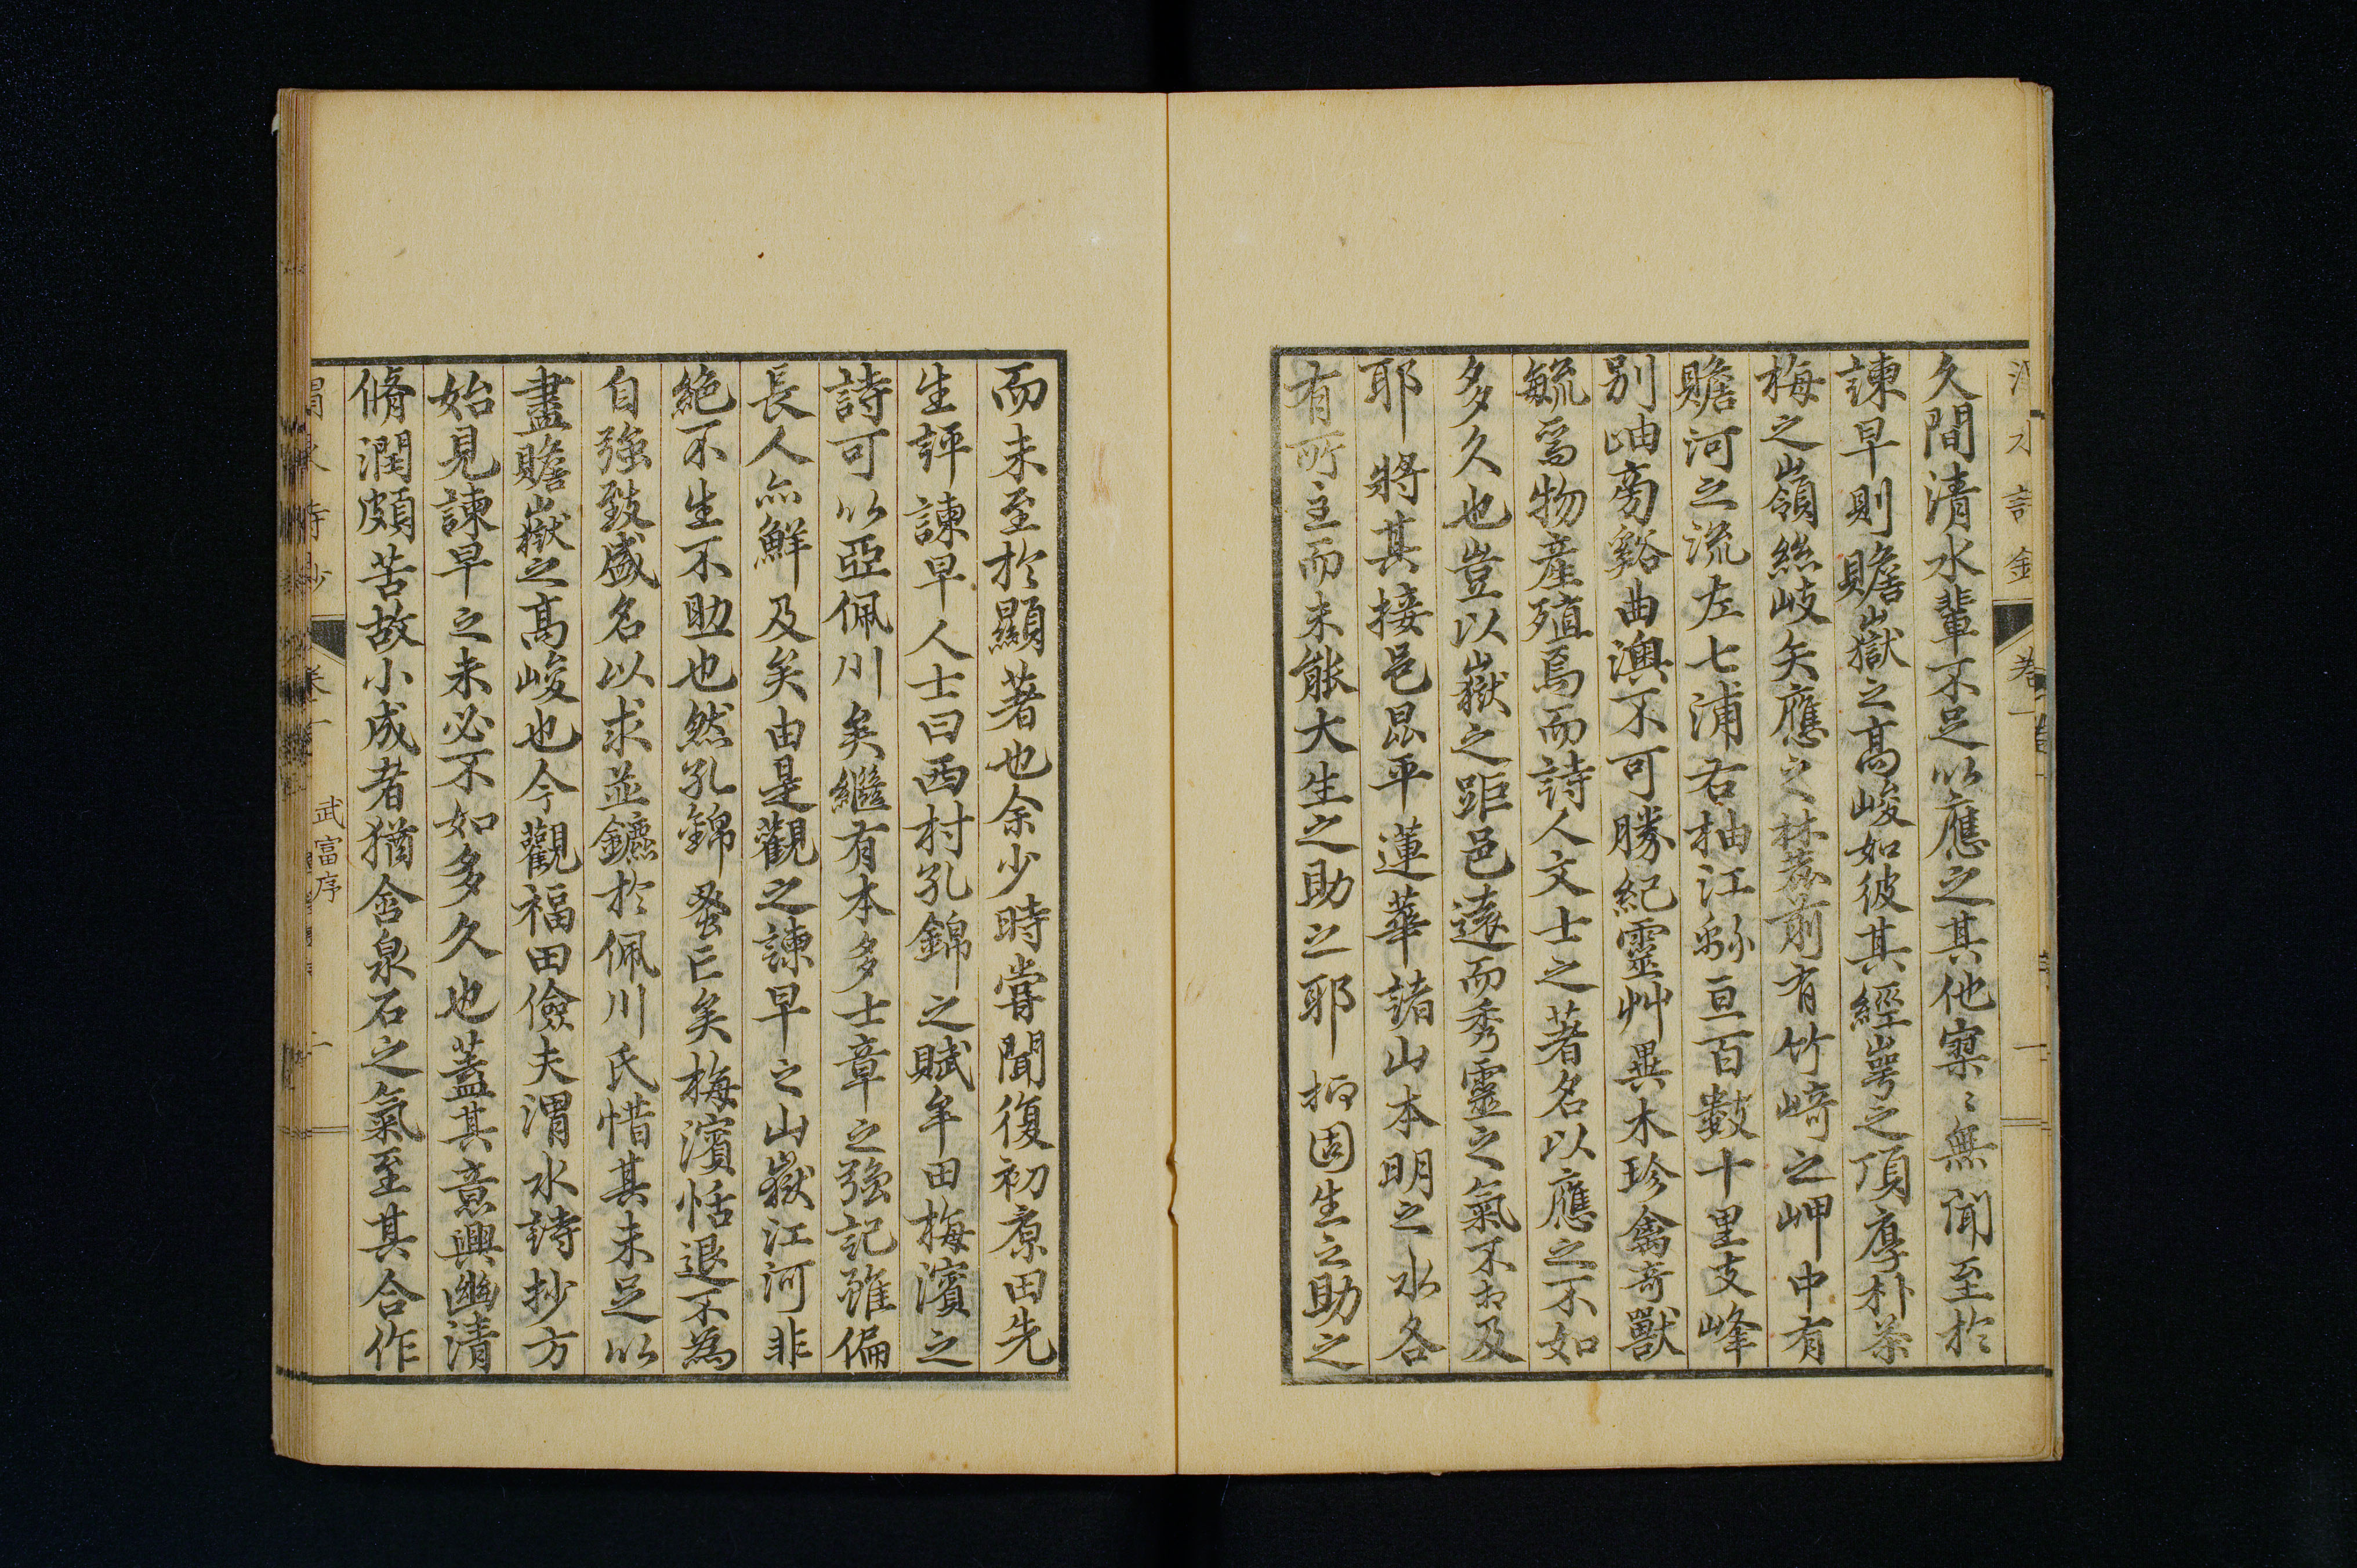 久間清水輩不足以應之其他寥〻無聞至於
諫早則贍嶽之高峻如彼其經𡺸之頂厚朴茶
梅之嶺絲岐矣應之林麓前有竹崎之岬中有
贍河之流左七浦右柚江綿亘百數十里支峰
別岫旁谿曲澳不可勝紀靈艸異木珍禽奇獸
毓爲物産殖焉而詩人文士之著名以應之不如
多久也豈以嶽之距邑遠而秀靈之氣不相及
耶將其接邑昆平蓮華諸山本明之水各
有所主而未能大生之助之耶抑固生之助之
而未至於顯著也余少時嘗聞復初原田先
生評諫早人士曰西村孔錦之賦牟田梅濱之
詩可以亞佩川矣繼有本多士章之強記雖偏
長人亦鮮及矣由是觀之諫早之山嶽江河非
絶不生不助也然孔錦蚤亡矣梅濱恬退不為
自強致盛名以求並鑣於佩川氏惜其未足以
盡贍嶽之高峻也今觀福田儉夫渭水詩抄方
始見諫早之未必不如多久也蓋其意興幽清
脩潤頗苦故小成者猶含泉石之氣至其合作
武富序